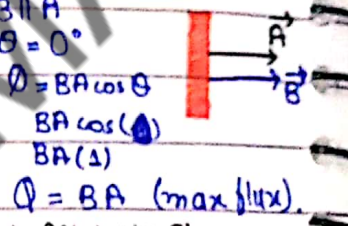 B || A
θ = 0°
Ø = BA cos θ
BA cos(0)
BA(1)
Q = BA (max flux).
A
B